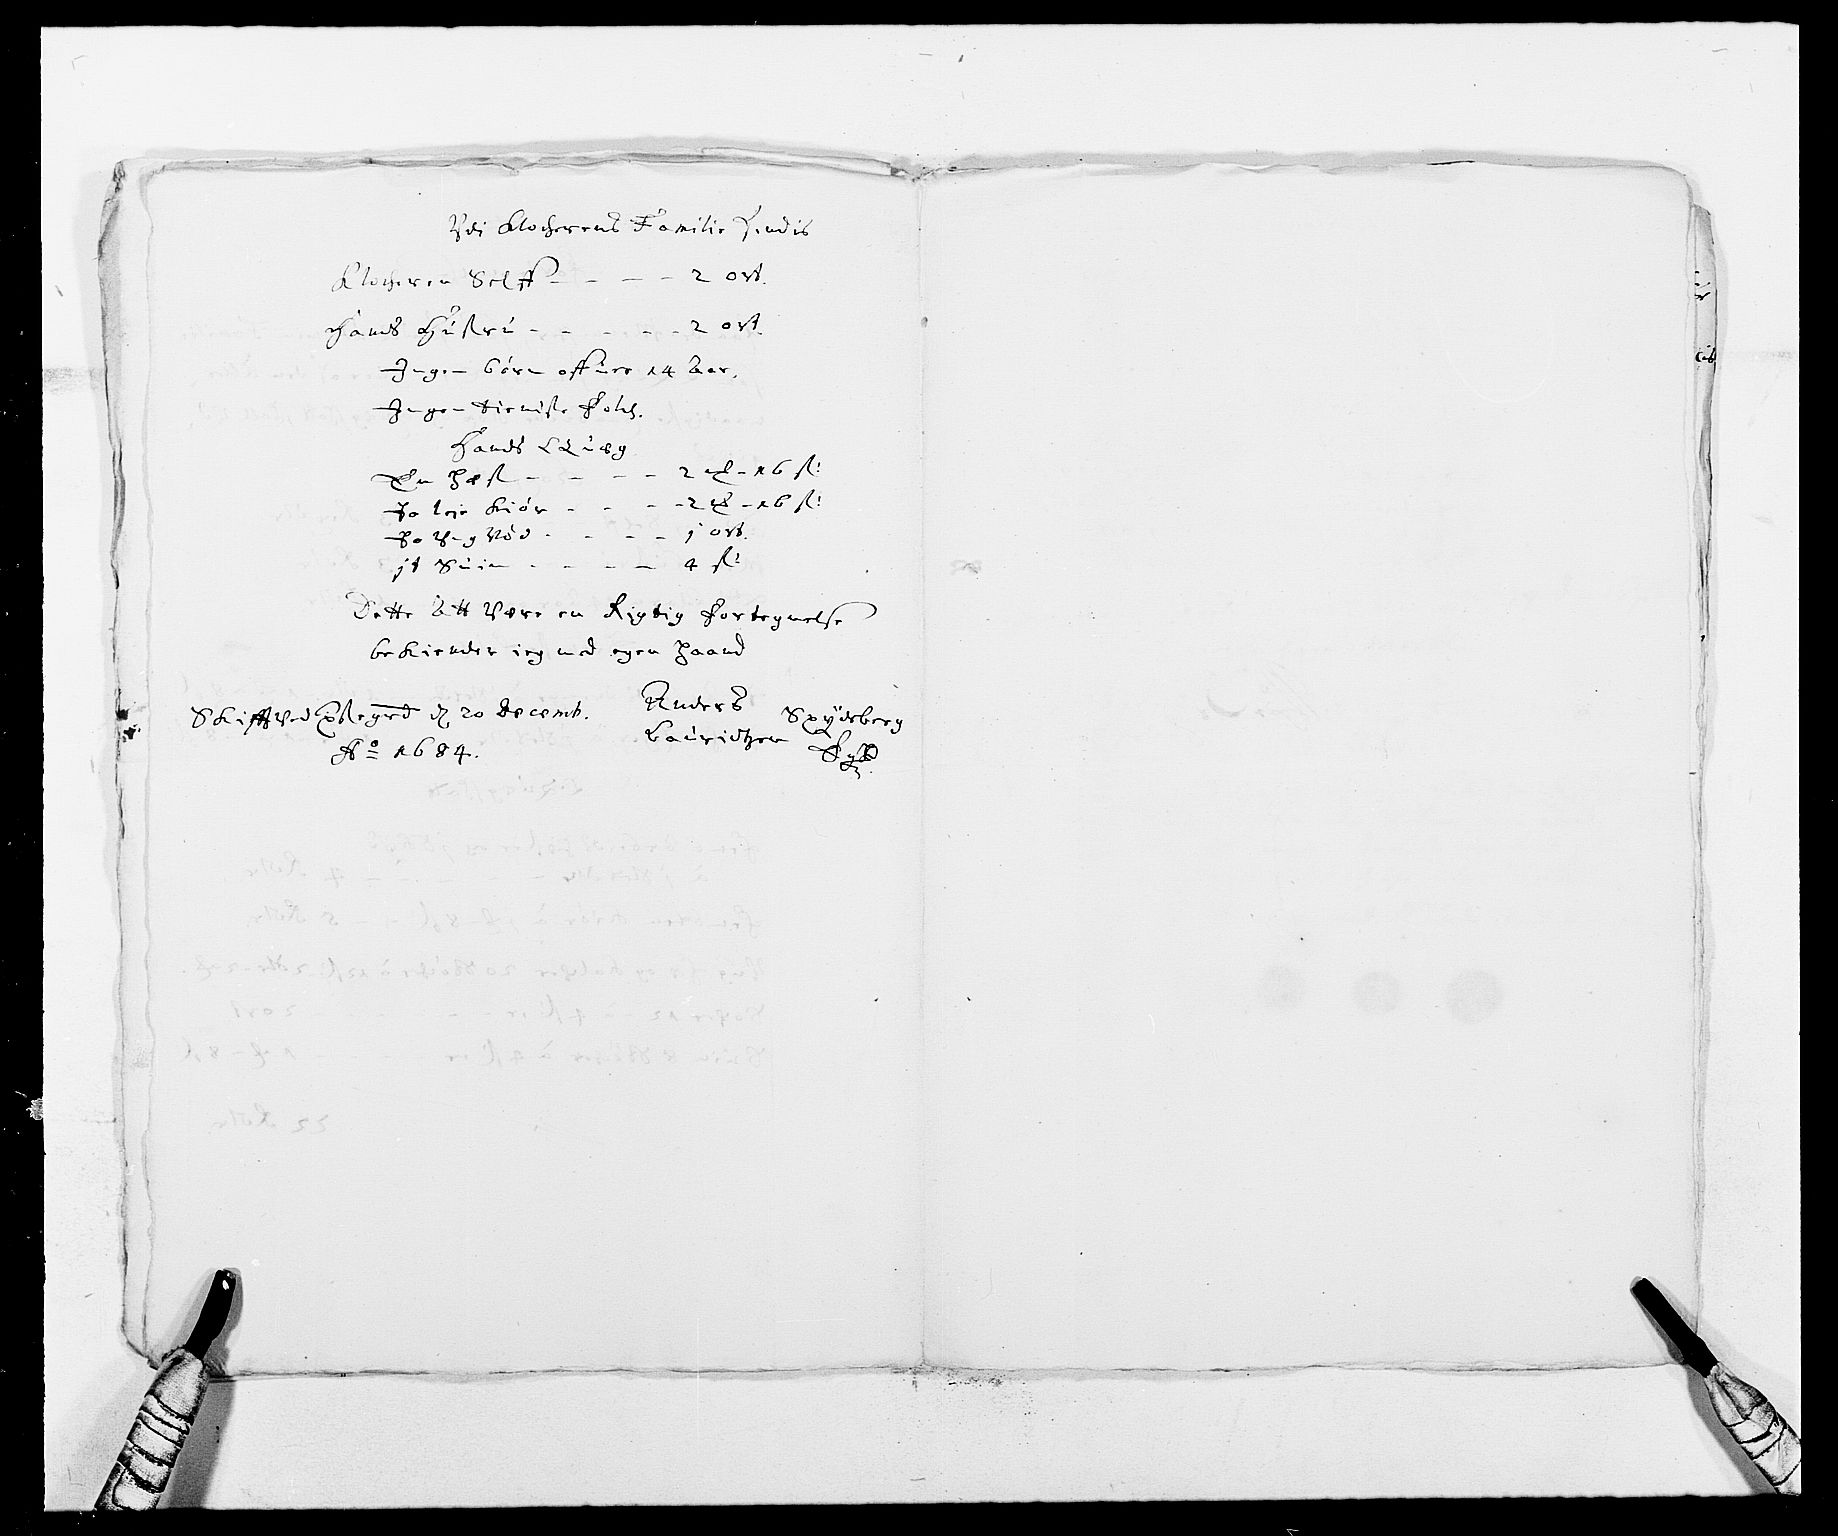 Udi Klocherens Familie findis
Klocheren Selff - - - - 2 ort.
Hands Hustru - - - - - 2 ort.
Ingen børn offuer 14 Aar.
Ingen tieniste folch.
Hands Qvæg
En Hest - - - - - 2 mk - 16 sk:
To Kiør - - - - 2 mk - 16 sk:
To Ungnød - - - - 1 ort.
jt Suin - - - - - 4 sk:
Dette att være en Rigtig fortegnelse
bekiender ieg med egen Haand
Skifftved Prestegrd d 20 Decemb.
Ao 1684.
Anders
Lauridtzen
Spydeberg